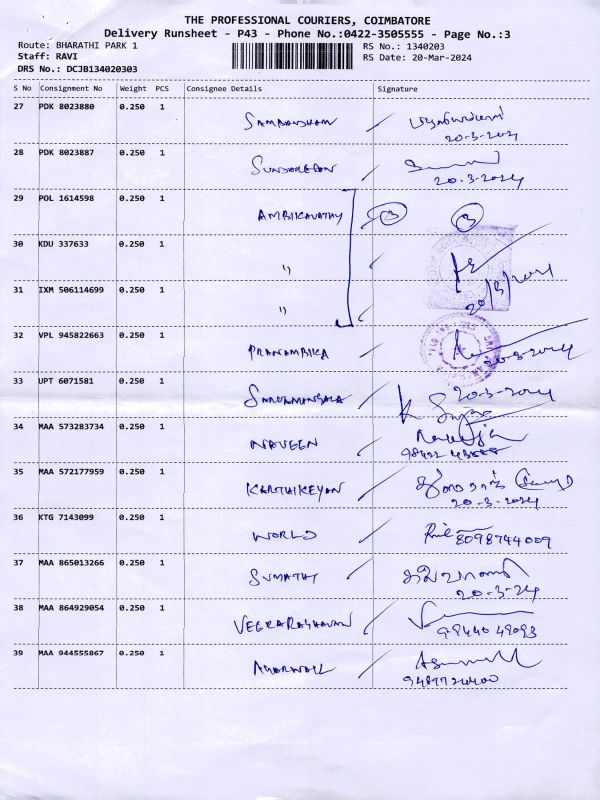 THE PROFESSIONAL COURIERS, COIMBATORE
Delivery Runsheet - P43 - Phone No.:0422-3505555 - Page No.:3
Route: BHARATHI PARK 1 RS No.: 1340203
Staff: RAVI RS Date: 20-Mar-2024
DRS No.: DCJB134020303
S No Consignment No Weight PCS Consignee Details Signature
27 PDK 8023880 0.250 1 SAMBANDHAM
20-3-2024
28 PDK 8023887 0.250 1 SUNDARESAN
20.3-2024
29 POL 1614598 0.250 1 AMBIKAVATHY 3 3
30 KDU 337633 0.250 1 "
20/3/2024
31 IXM 506114699 0.250 1 "
32 VPL 945822663 0.250 1 PRANAMBIKA
20-3-2024
33 UPT 6071581 0.250 1 SARVAMANGALA 20-3-2024
34 MAA 573283734 0.250 1 NAVEEN
35 MAA 572177959 0.250 1 KARTHIKEYAN
20-3-2024
36 KTG 7143099 0.250 1 WORLD 8098744009
37 MAA 865013266 0.250 1 SUMATHY
20-3-24
38 MAA 864929054 0.250 1 VEERARAGHAVAN
39 MAA 944555867 0.250 1 AGARWALL